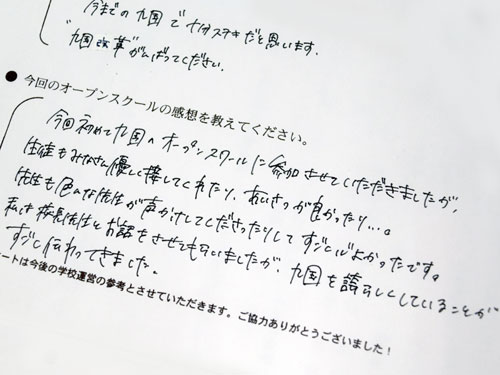 今までの九国で十分ステキだと思います。
"九国改革"がんばってください。
● 今回のオープンスクールの感想を教えてください。
今回初めて九国へオープンスクールに参加させていただきましたが、
生徒もみなさん優しく接してくれたり、あいさつが良かったり…。
先生も色んな先生が声かけしてくださったりしてすごくよかったです。
私は校長先生とお話をさせてもらいましたが、九国を誇らしくしていることが
すごく伝わってきました。
ートは今後の学校運営の参考とさせていただきます。ご協力ありがとうございました！